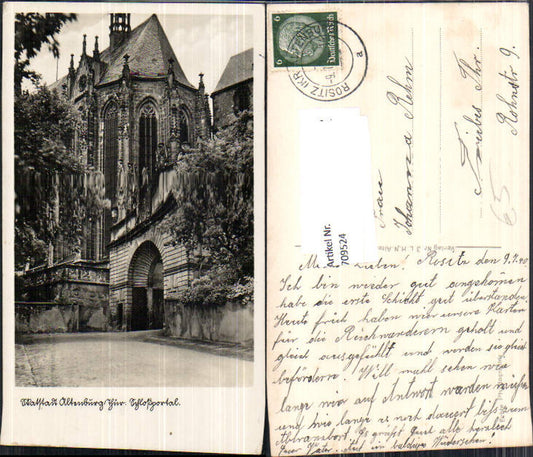 Skatstadt Altenburg Thür. Schloßportal.
6 6
Deutsches Reich
ROSITZ (KR. ALTENBURG)
a
Frau
Johanna Rehm
Treben Thr.
Rohnstr 9.
65
Artikel Nr.
709524
Verlag Nr 3
Rositz den 9.7.40
Ich bin wieder gut angekommen
habe die erste Schicht gut überstanden
Heute früh haben wir unsere Karten
für die Reichwanderern geholt und
gleich ausgefüllt und werden sie gleich
befördern. Will mahl sehen wie
lange wir auf Antwort warden müssen
und wie lange es noch dauert bis zum
Abtransbort. Es grüßt Euch alle herzlich
Euer Vater. Auf ein baldiges Wiedersehen!